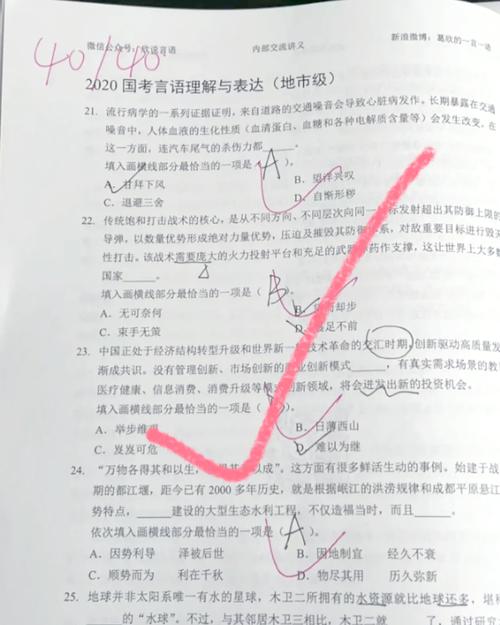 微信公众号：欣说言语 内部交流讲义 新浪微博：葛欣的一言一语
40/40
2020国考言语理解与表达（地市级）
21. 流行病学的一系列证据证明，来自道路的交通噪音会导致心脏病发作。长期暴露在交通
噪音中，人体血液的生化性质（血清蛋白、血糖和各种电解质含量等）会发生改变。在
这一方面，连汽车尾气的杀伤力都______。
填入画横线部分最恰当的一项是（A）。
A. 甘拜下风 B. 望洋兴叹
C. 退避三舍 D. 自惭形秽
22. 传统饱和打击战术的核心，是从不同方向、不同层次向同一目标发射超出其防御上限的
导弹，以数量优势形成绝对力量优势，压迫及摧毁其防御体系，对敌重要目标进行毁灭
性打击。该战术需要庞大的火力投射平台和充足的武器弹药作支撑，这让世界上大多数
国家______。
填入画横线部分最恰当的一项是（B）。
A. 无可奈何 B. 望而却步
C. 束手无策 D. 裹足不前
23. 中国正处于经济结构转型升级和世界新一轮技术革命的交汇时期，创新驱动高质量发
渐成共识。没有管理创新、市场创新的 创新模式______，有真实需求场景的教
医疗健康、信息消费、消费升级等模式创新领域，将会迸发出新的投资机会。
填入画横线部分最恰当的一项是（ ）。
A. 举步维艰 B. 日薄西山
C. 岌岌可危 D. 难以为继
24. “万物各得其和以生，各得其养以成”。这方面有很多鲜活生动的事例。始建于战
期的都江堰，距今已有2000多年历史，就是根据岷江的洪涝规律和成都平原悬江
势特点，______建设的大型生态水利工程，不仅造福当时，而且______。
依次填入画横线部分最恰当的一项是（A）。
A. 因势利导 泽被后世 B. 因地制宜 经久不衰
C. 顺势而为 利在千秋 D. 物尽其用 历久弥新
25. 地球并非太阳系唯一有水的星球，木卫二所拥有的水资源就比地球还多，堪称
______的“水球”。不过，与其邻居木卫三相比，木卫二就______了，通过研究